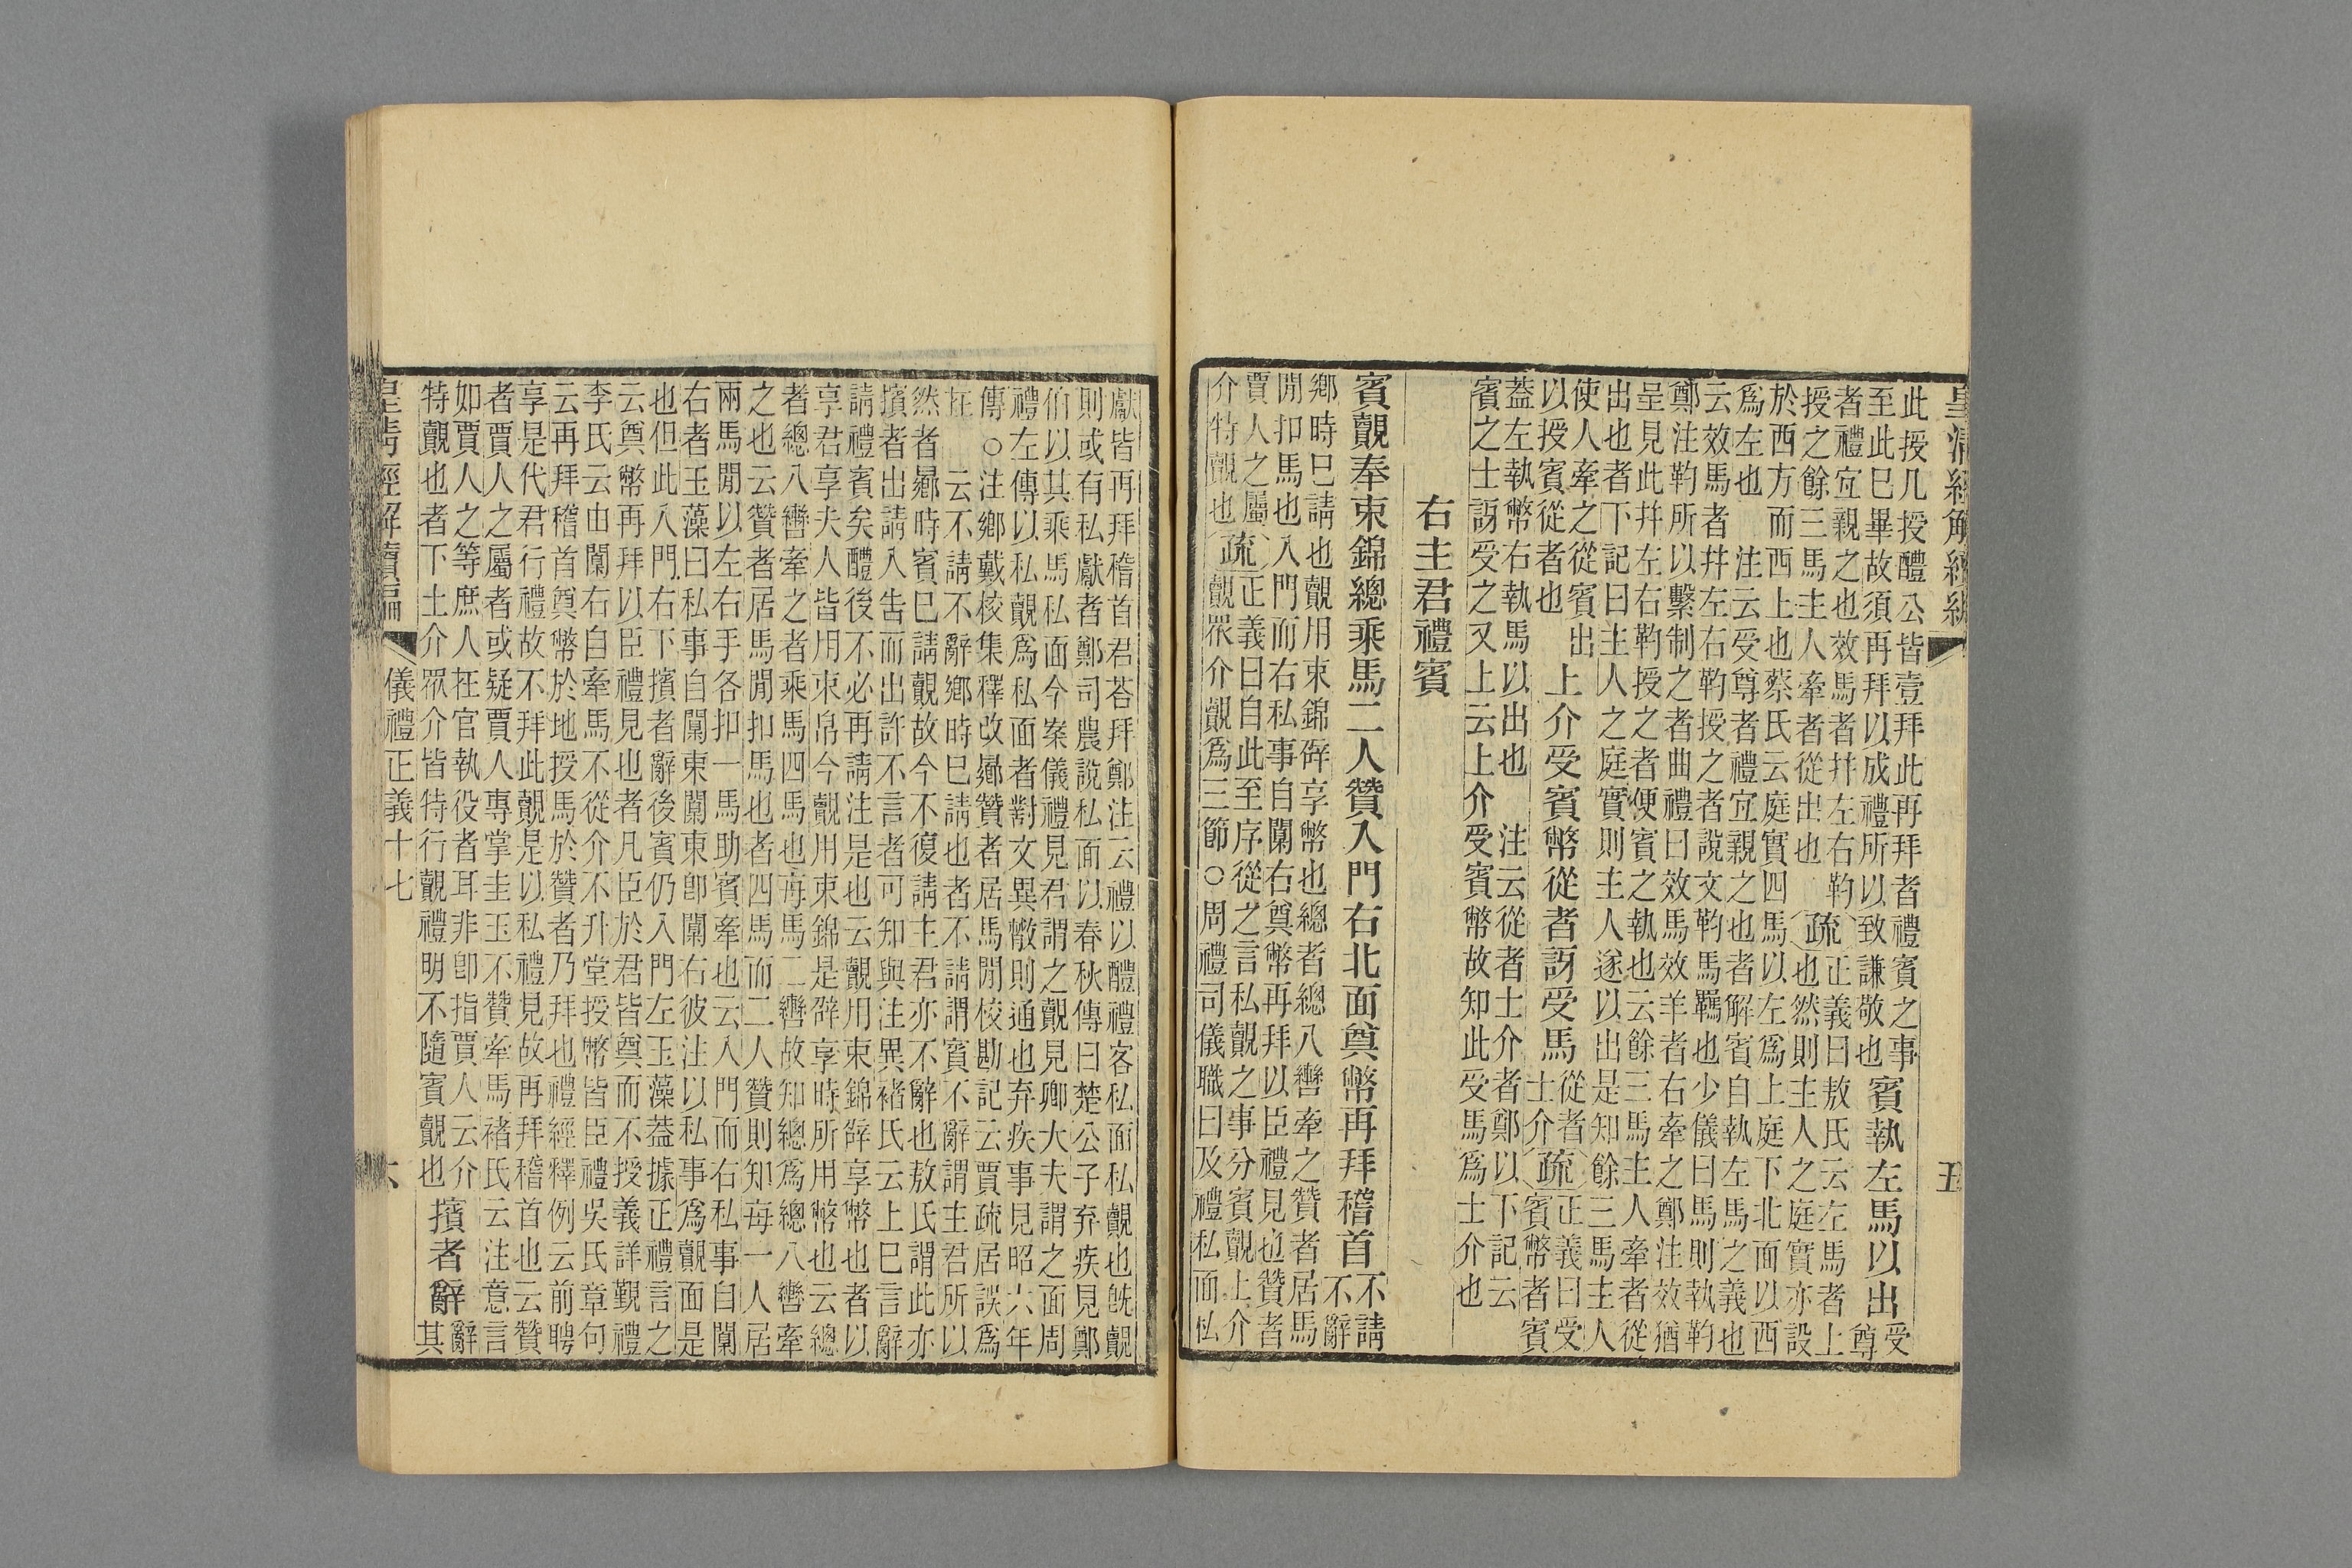 皇清經解續編
五
此授几授醴公皆壹拜此再拜者禮賓之事
至此巳畢故須再拜以成禮所以致謙敬也
賓執左馬以出
受尊
者禮宜親之也效馬者幷左右靮
授之餘三馬主人牽者從出也
疏
正義曰敖氏云左馬者上
也然則主人之庭實亦設
於西方而西上也蔡氏云庭實四馬以左爲上庭下北面以西
爲左也 注云受尊者禮宜親之也者解賓自執左馬之義也
云效馬者幷左右靮授之者說文靮馬羈也少儀曰馬則執靮
鄭注靮所以繫制之者曲禮曰效馬效羊者右牽之鄭注效猶
呈見此幷左右靮授之者便賓之執也云餘三馬主人牽者從
出也者下記曰主人之庭實則主人遂以出是知餘三馬主人
使人牽之從賓出
以授賓從者也
上介受賓幣從者訝受馬
從者
士介
疏
正義曰受
賓幣者賓
蓋左執幣右執馬以出也 注云從者士介者鄭以下記云
賓之士訝受之又上云上介受賓幣故知此受馬爲士介也
右主君禮賓
賓覿奉束錦總乘馬二人贊入門右北面奠幣再拜稽首
不請
不辭
鄉時巳請也覿用束錦辟享幣也總者總八轡牽之贊者居馬
閒扣馬也入門而右私事自闑右奠幣再拜以臣禮見也贊者
賈人之屬
介特覿也
疏
正義曰自此至序從之言私覿之事分賓覿上介
覿眾介覿爲三節○周禮司儀職曰及禮私面私
獻皆再拜稽首君荅拜鄭注云禮以醴禮客私面私覿也旣覿
則或有私獻者鄭司農說私面以春秋傳曰楚公子弃疾見鄭
伯以其乘馬私面今案儀禮見君謂之覿見卿大夫謂之面周
禮左傳以私覿爲私面者對文異散則通也弃疾事見昭六年
傳○注鄉戴校集釋改曏贊者居馬閒校勘記云賈疏居誤爲
在 云不請不辭鄉時巳請也者不請謂賓不辭謂主君所以
然者曏時賓巳請覿故今不復請主君亦不辭也敖氏謂此亦
擯者出請入告而出許不言者可知與注異褚氏云上巳言辭
請禮賓矣醴後不必再請注是也云覿用束錦辟享幣也者以
享君享夫人皆用束帛今覿用束錦是辟享時所用幣也云總
者總八轡牽之者乘馬四馬也每馬二轡故知總爲總八轡牽
之也云贊者居馬閒扣馬也者四馬而二人贊則知每一人居
兩馬閒以左右手各扣一馬助賓牽也云入門而右私事自闑
右者玉藻曰私事自闑東闑東卽闑右彼注以私事爲覿面是
也但此入門右下擯者辭後賓仍入門左玉藻蓋據正禮言之
云奠幣再拜以臣禮見也者凡臣於君皆奠而不授義詳覲禮
李氏云由闑右自牽馬不從介不升堂授幣皆臣禮吳氏章句
云再拜稽首奠幣於地授馬於贊者乃拜也禮經釋例云前聘
享是代君行禮故不拜此覿是以私禮見故再拜稽首也云贊
者賈人之屬者或疑賈人專掌圭玉不贊牽馬褚氏云注意言
如賈人之等庶人在官執役者耳非卽指賈人云介
特覿也者下士介眾介皆特行覿禮明不隨賓覿也
擯者辭
辭
其
皇淸經解續編
儀禮正義十七
六